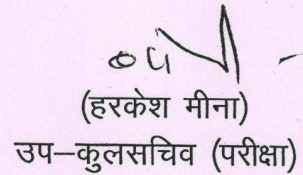 (हरकेश मीना)
उप–कुलसचिव (परीक्षा)